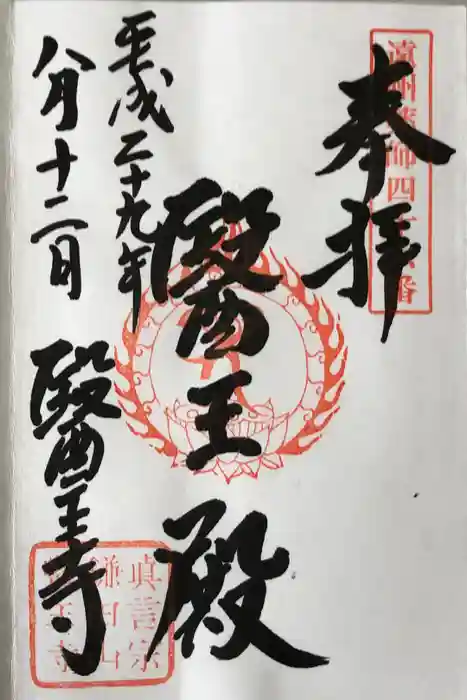 奉拝
遠州薬師四十
番
醫王殿
平成二十九年
八月十二日
醫王寺
真言宗
鎌田山
醫王寺